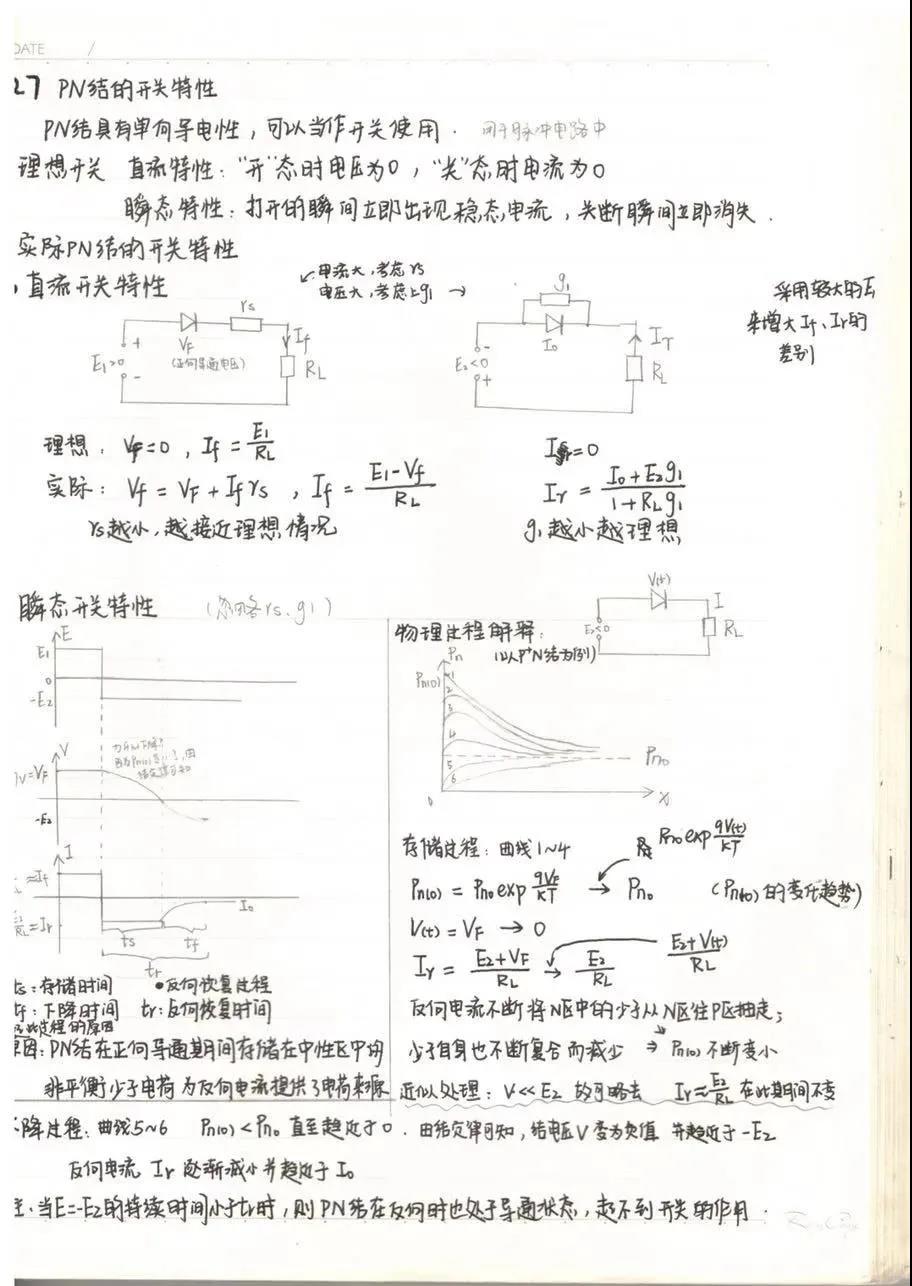 DATE /
2.7 PN结的开关特性
PN结具有单向导电性，可以当作开关使用． 用于脉冲电路中
理想开关 直流特性："开"态时电压为0，"关"态时电流为0
瞬态特性：打开的瞬间立即出现稳态电流，关断瞬间立即消失．
实际PN结的开关特性
直流开关特性
电流大，考虑rs
电压大，考虑上g1
采用较大的E1
来增大If、Ir的
差别
E1>0 + - VF (正向导通电压) rs If RL
E2<0 - + g1 I0 Ir RL
理想：VF=0，If = E1/RL
Ir=0
实际：Vf = VF + If rs ，If = (E1-Vf)/RL
Ir = (I0+E2g1)/(1+RLg1)
rs越小，越接近理想情况
g1越小越理想
瞬态开关特性 (忽略rs、g1)
E E1 0 -E2
V V=VF -E2
I ≈If =Ir I0 ts tf tr
ts：存储时间 •反向恢复过程
tf：下降时间 tr：反向恢复时间
此过程的原因
原因：PN结在正向导通期间存储在中性区中的
非平衡少子电荷为反向电流提供了电荷来源
物理过程解释：
(以P+N结为例)
V(t) I E2<0 RL
Pn Pn(0) 1 2 3 4 5 6 Pn0 0 x
存储过程：曲线1~4 Pn0 exp qV(t)/kT
Pn(0) = Pn0 exp qVF/kT → Pn0 (Pn(0)的变化趋势)
V(t) = VF → 0
Ir = (E2+VF)/RL → E2/RL (E2+V(t))/RL
反向电流不断将N区中的少子从N区往P区抽走；
少子自身也不断复合而减少 ⇒ Pn(0)不断变小
近似处理：V<<E2 故可略去 Ir≈E2/RL 在此期间不变
下降过程：曲线5~6 Pn(0)<Pn0 直至趋近于0．由结定律可知，结电压V变为负值 并趋近于-E2
反向电流 Ir 逐渐减小并趋近于I0
注．当E=-E2的持续时间小于tr时，则PN结在反向时也处于导通状态，起不到开关的作用．